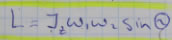 L = J_z ω_1 ω_2 sin α